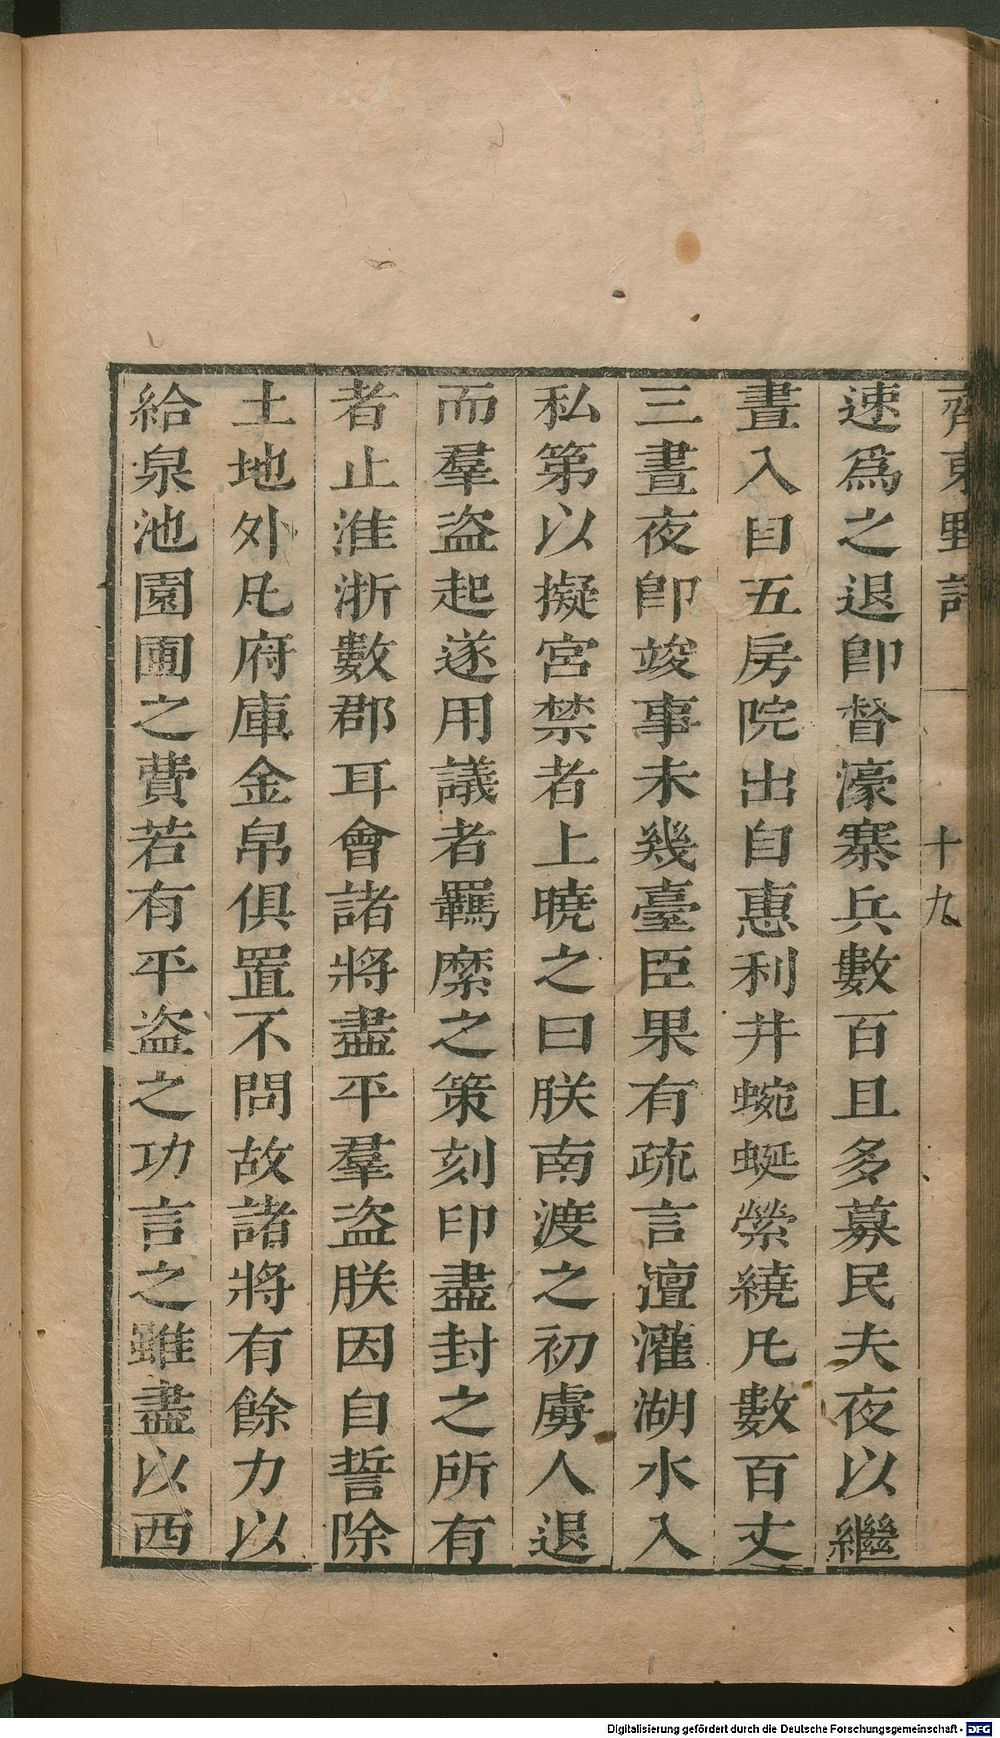 齊東野語
十九
速爲之退卽督濠寨兵數百且多募民夫夜以繼
晝入自五房院出自惠利井蜿蜒縈繞凡數百丈
三晝夜卽竣事未幾臺臣果有疏言擅灌湖水入
私第以擬宮禁者上曉之曰朕南渡之初虜人退
而羣盜起遂用議者羈縻之策刻印盡封之所有
者止淮浙數郡耳會諸將盡平羣盜朕因自誓除
土地外凡府庫金帛俱置不問故諸將有餘力以
給泉池園圃之費若有平盜之功言之雖盡以西
Digitalisierung gefördert durch die Deutsche Forschungsgemeinschaft - DFG